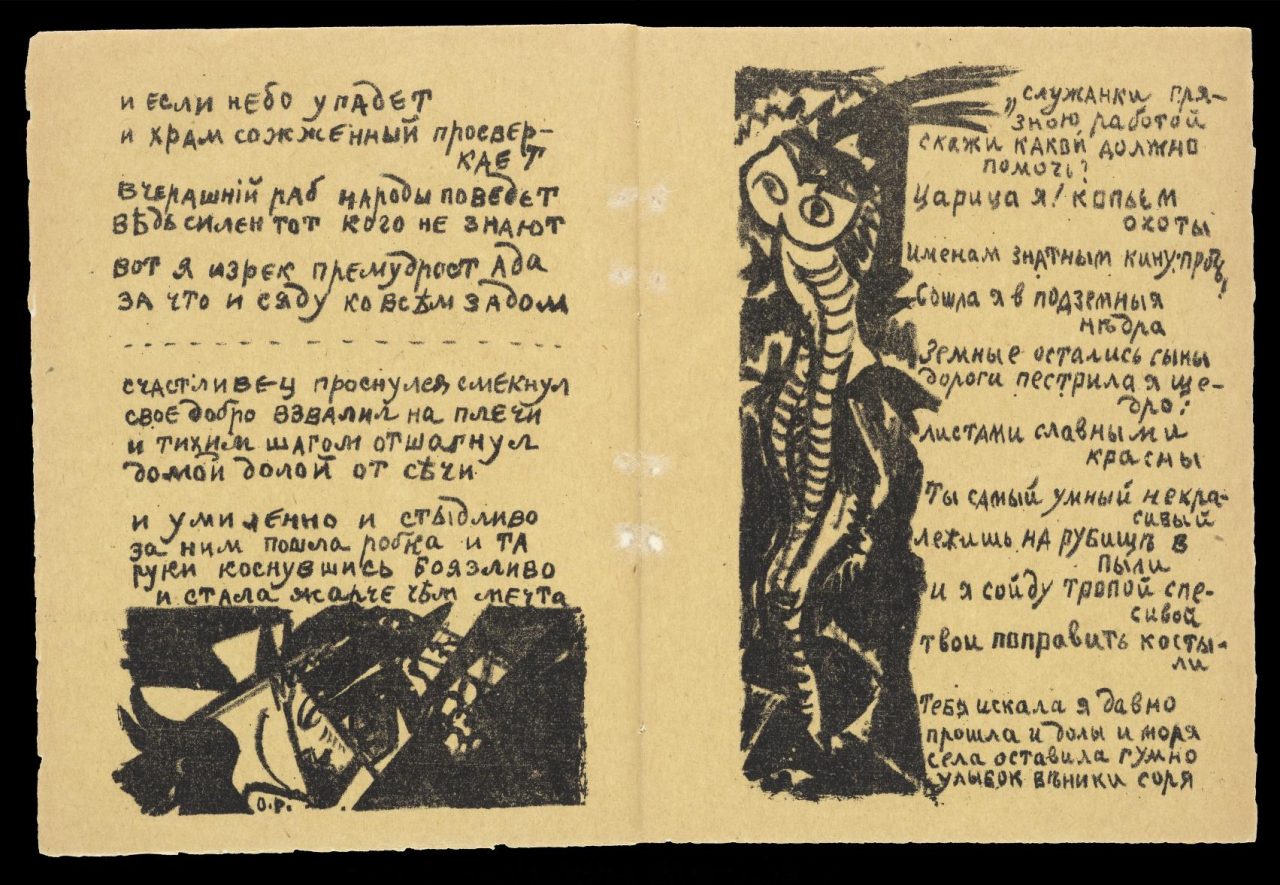 и если небо упадет
и храм сожженный просвер-
кает
вчерашній раб народы поведет
вѣдь силен тот кого не знают
вот я изрек премудрост Ада
за что и сяду ко всѣм задом
счастливец проснулся смекнул
свое добро взвалил на плечи
и тихим шагом отшагнул
домой долой от сѣчи
и умиленно и стыдливо
за ним пошла робка и та
руки коснувшись боязливо
и стала жарче чѣм мечта
О.Р.
„служанки гря-
зною работой
скажи какой должно
помочь?
Царица я! копьем
охоты
именам знатным кину:прочь"
Сошла я в подземныя
нѣдра
Земные остались сыны
дороги пестрила я ще-
дро:
листами славными
красны
Ты самый умный некра-
сивый
лежишь на рубищѣ в
пыли
и я сойду тропой спе-
сивой
твои поправить косты-
ли
Тебя искала я давно
прошла и долы и моря
села оставила гумно
улыбок вѣники соря